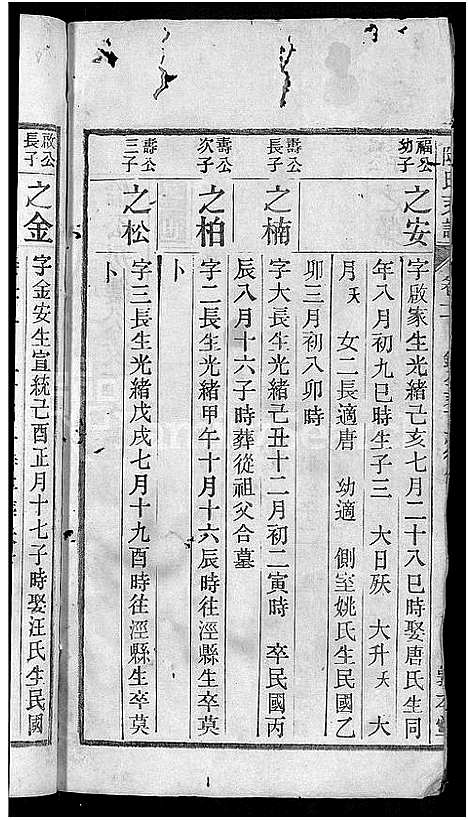 福公幼子
之安
字啟家生光緒己亥七月二十八巳時娶唐氏生同
年八月初九巳時生子三 大日殀 大升殀 大
月殀 女二長適唐 幼適 側室姚氏生民國乙
卯三月初八卯時
壽公長子
之楠
字大長生光緒己丑十二月初二寅時 卒民國丙
辰八月十六子時葬從祖父合墓
壽公次子
之柏
字二長生光緒甲午十月十六辰時往涇縣生卒莫
卜
壽公三子
之松
字三長生光緒戊戌七月十九酉時往涇縣生卒莫
卜
啟公長子
之金
字金安生宣統己酉正月十七子時娶汪氏生民國